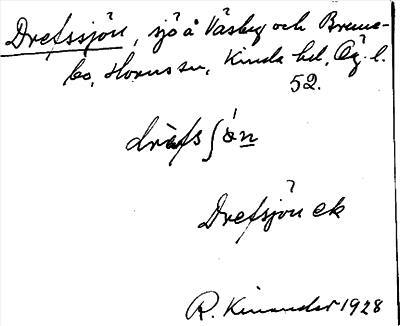 Drefssjön, sjö å Väsby och Bremé-
bo, Horns sn, Kinda hd, Ög. l.
52.
drèfsʃö́n
Drefsjön ek
R. Kinander 1928